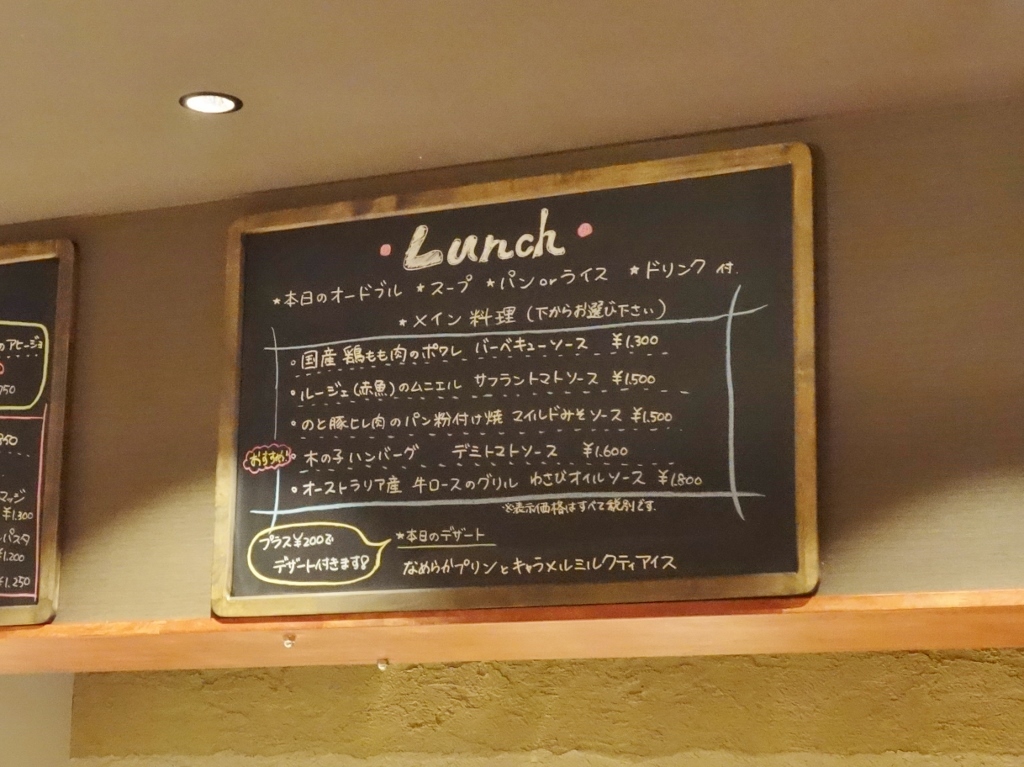 Lunch
*本日のオードブル *スープ *パンorライス *ドリンク 付.
*メイン料理(下からお選び下さい)
。国産 鶏もも肉のポワレ バーベキューソース ¥1.300
。ルージェ(赤魚)のムニエル サフラントマトソース ¥1.500
。のと豚ヒレ肉のパン粉付け焼 マイルドみそソース ¥1.500
おすすめ 。木の子ハンバーグ デミトマトソース ¥1.600
。オーストラリア産 牛ロースのグリル わさびオイルソース ¥1.800
※表示価格はすべて税別です.
プラス¥200で
デザート付きます!
*本日のデザート
なめらかプリンとキャラメルミルクティアイス
のアヒージョ
マッジ
¥1.300
パスタ
¥1.200
¥1.250